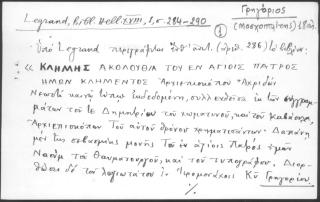 Legrand, Bibl. Hell. XVIII, 1, σ. 284-290
Γρηγόριος
(Μοσχοπολίτης) ιερομ.
1
Ὑπὸ Legrand περιγράφεται ὑπ' ἀριθ. (ἀριθ. 286) τὸ βιβλίον.
« ΚΛΗΜΗΣ ΑΚΟΛΟΥΘΙΑ ΤΟΥ ΕΝ ΑΓΙΟΙΣ ΠΑΤΡΟΣ
ΗΜΩΝ ΚΛΗΜΕΝΤΟΣ Ἀρχιεπισκόπου Ἀχριδῶν
Νεωστὶ καινῷ τύπῳ ἐκδεδομένη, συλλεχθεῖσα ἐκ τῶν συγγραμ-
μάτων τοῦ τε Δημητρίου τοῦ χωματινοῦ, καὶ τοῦ Καβάσιλα,
Ἀρχιεπισκόπων Τοῦ αὐτοῦ θρόνου χρηματισάντων. Δαπάνῃ
μὲν τῆς σεβασμίας μονῆς Τοῦ ἐν ἁγίοις Πατρὸς ἡμῶν
Ναοὺμ τοῦ θαυματουργοῦ, καὶ τοῦ τυπογράφου. Διορ-
θώσει δὲ τοῦ λογιωτάτου ἐν Ἱερομονάχοις Κῦ Γρηγορίου.